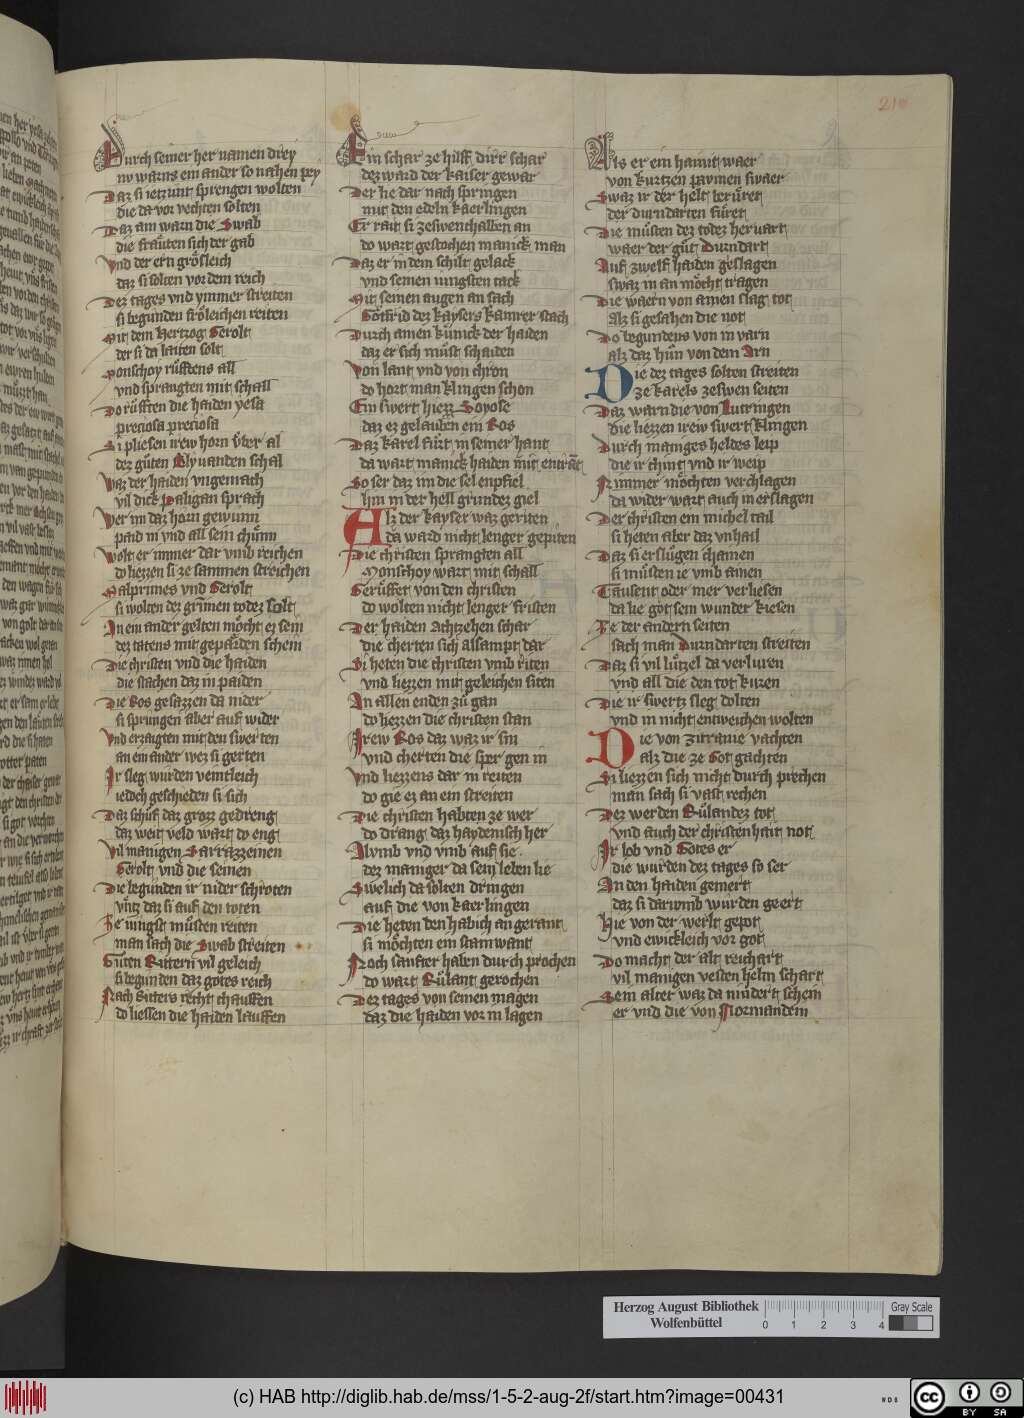 210
Durch seiner her namen direy
nv warns ein ander so nahen pey
Daz si ietzunt sprengen wolten
die da vor vechten solten
Daz am warn die Swab
die fraͤuten sich der gab
Vnd der ern groͤsleich
daz si solten vor dem reich
Dez tages vnd ymmer streiten
si begunden froͤleichen reiten
Mit dem hertzog Gerolt
der si da laiten solt
Monschoy ruͤfftens all
vnd sprangten mit schall
Do ruͤfften die haiden yesa
preciosa preciosa
Si pliesen irew horn vͤber al
dez guͤten Olyuanden schal
Waz der haiden vngemach
vil dick Paligan sprach
Wer im daz horn gewunn
paid in vnd all sein chuͤnn
Wolt er immer dar vmb reichen
do liezzen si ze sammen streichen
Malprimes vnd Gerolt
si wolten dez grimen todez solt
An ein ander gelten moͤcht ez sein
dez tatens mit gepaͤrden schein
Die christen vnd die haiden
die stachen daz in paiden
Die Ros gesazzen da nider
si sprungen aber auf wider
Vnd erzaigten mit den swerten
an ein ander wez si gerten
Ir sleg wurden veintleich
iedoch geschieden si sich
Daz schuͤf daz groz gedreng
daz weit veld wart do eng
Vil manigen Sarrazzeinen
Gerolt vnd die seinen
Die begunden ir nider schroten
vntz daz si auf den toten
Ze iungist muͤsten reiten
man sach die Swab streiten
Guͤten Rittern vil geleich
si begunden daz gotes reich
Nach Ritters recht chauffen
do liessen die haiden lauffen
Ein schar ze hilff dirr schar
dez ward der kaiser gewar
Der hie dar nach springen
mit den edeln kaerlingen
Er rait si zeswenthalben an
do wart gestochen manick man
Daz er in dem schilt gelack
vnd seinen iungsten tack
Mit seinen augen an sach
Gotfrid dez kaysers kamrer stach
Durch ainen kuͤnick der haiden
daz er sich muͤst schaiden
Von lant vnd von chron
do hort man klingen schon
Ein swert hiezz Soyose
daz ez gelauben ein Ros
Daz Karel fuͤrt in seiner hant
da wart manick haiden mit entrant
So ser daz im die sel enpfiel
hin in der hell grundez giel
Alz der kayser waz geriten
da ward nicht lenger gepiten
Die christen sprangten all
Monschoy wart mit schall
Geruͤffet von den christen
do wolten nicht lenger fristen
Der haiden Achtzehen schar
die cherten sich allsampt dar
Si heten die christen vmb riten
vnd liezzen mit geleichen siten
An allen enden zuͤ gan
do liezzen die christen stan
Irew Ros daz waz ir sin
vnd cherten die sper gen in
Vnd liezzens dar in reiten
do gie ez an ein streiten
Die christen habten ze wer
do drang daz haydenisch her
Alvmb vnd vmb auf sie
dez maniger da sein leben lie
Swelich da solten dringen
auf die von kaerlingen
Die heten den habich an gerant
si moͤchten ein stainwant
Noch sanfter haben durch prochen
do wart Ruͤlant gerochen
Dez tages von seinen magen
daz die haiden vor in lagen
Als er ein hamit waer
von kurtzen paymen swaer
Swaz ir der helt beruͤret
der durndarten fuͤret
Die muͤsten dez todez hervart
waer der guͤt Durndart
Auf zwelf haiden geslagen
swaz in an moͤcht tragen
Die waern von ainen slag tot
Alz si gesahen die not
Do begundens von in varn
alz daz huͤn von dem Arn
Die dez tages solten streiten
ze karels zeswen seiten
Daz warn die von Lutringen
die liezzen irew swert klingen
Durch maniges heldes leip
die ir chint vnd ir weip
Nimmer moͤchten verchlagen
da wider wart auch in erslagen
Der christen ein michel tail
si heten aber daz vnhail
Daz si erslugen chainen
si muͤsten ie vmb ainen
Tausent oder mer verliesen
da lie got sein wunder kiesen
Ze der andern seiten
sach man Durndarten streiten
Daz si vil luͤtzel da verluren
vnd all die den tot kuren
Die ir swertz sleg dolten
vnd in nicht entweichen wolten
Die von Zirranie vachten
alz die ze Got gachten
Si liezzen sich nicht durch prechen
man sach si vast rechen
Dez werden Ruͤlandez tot
vnd auch der christenhait not
Ir lob vnd Gotes er
die wurden dez tages so ser
An den haiden gemert
daz si darvmb wurden geert
Hie von der werlt gepot
vnd ewickleich vor got
Do macht der alt reichart
vil manigen vesten helm schart
Sein alter waz da mindert schein
er vnd die von Normandein
Herzog August Bibliothek
Wolfenbüttel
0 1 2 3 4
Gray Scale
(c) HAB http://diglib.hab.de/mss/1-5-2-aug-2f/start.htm?image=00431
cc BY SA